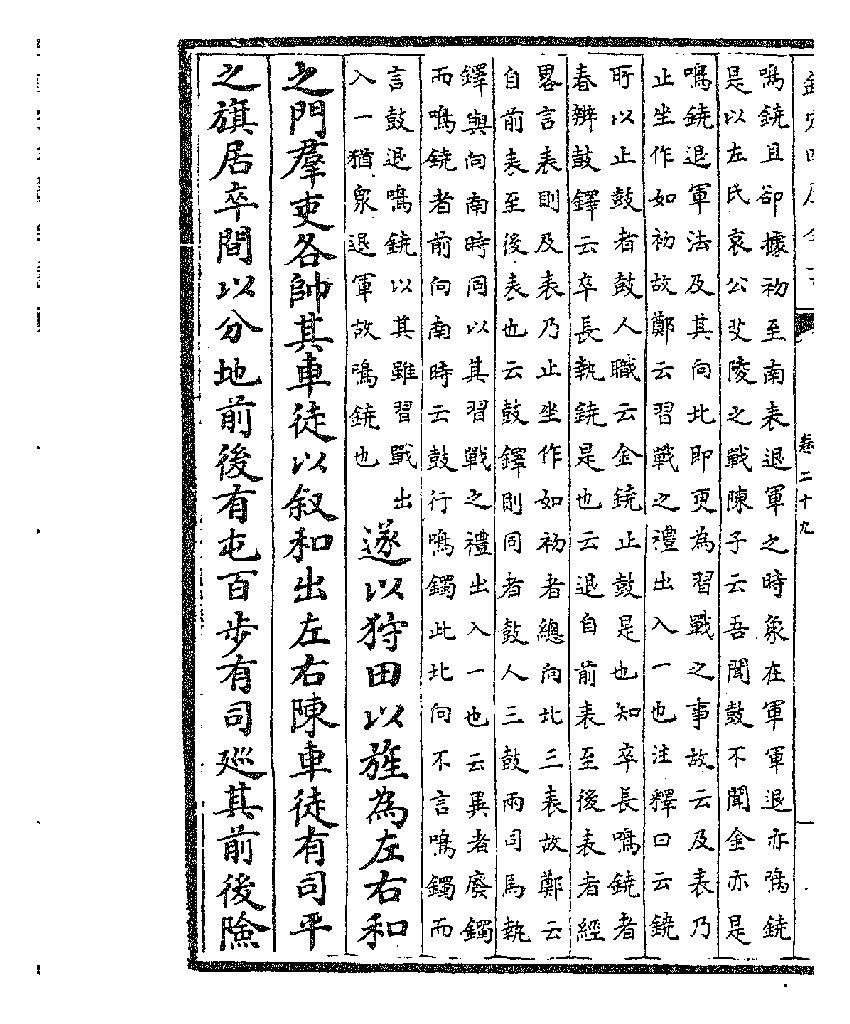 卷二十九
鳴鐃且卻據初至南表退軍之時象在軍軍退亦鳴鐃
是以左氏哀公艾陵之戰陳子云吾聞鼓不聞金亦是
鳴鐃退軍法及其向北即更為習戰之事故云及表乃
止坐作如初故鄭云習戰之禮出入一也注釋曰云鐃
所以止鼓者鼓人職云金鐃止鼓是也知卒長鳴鐃者
春辨鼓鐸云卒長執鐃是也云退自前表至後表者經
畧言表則及表乃止坐作如初者總向北三表故鄭云
自前表至後表也云鼓鐸則同者鼓人三鼓兩司馬執
鐸與向南時同以其習戰之禮出入一也云異者廢鐲
而鳴鐃者前向南時云鼓行鳴鐲此北向不言鳴鐲而
言鼓退鳴鐃以其雖習戰出
入一猶象退軍故鳴鐃也
遂以狩田以旌為左右和
之門羣吏各帥其車徒以叙和出左右陳車徒有司平
之旗居卒間以分地前後有屯百步有司廵其前後險